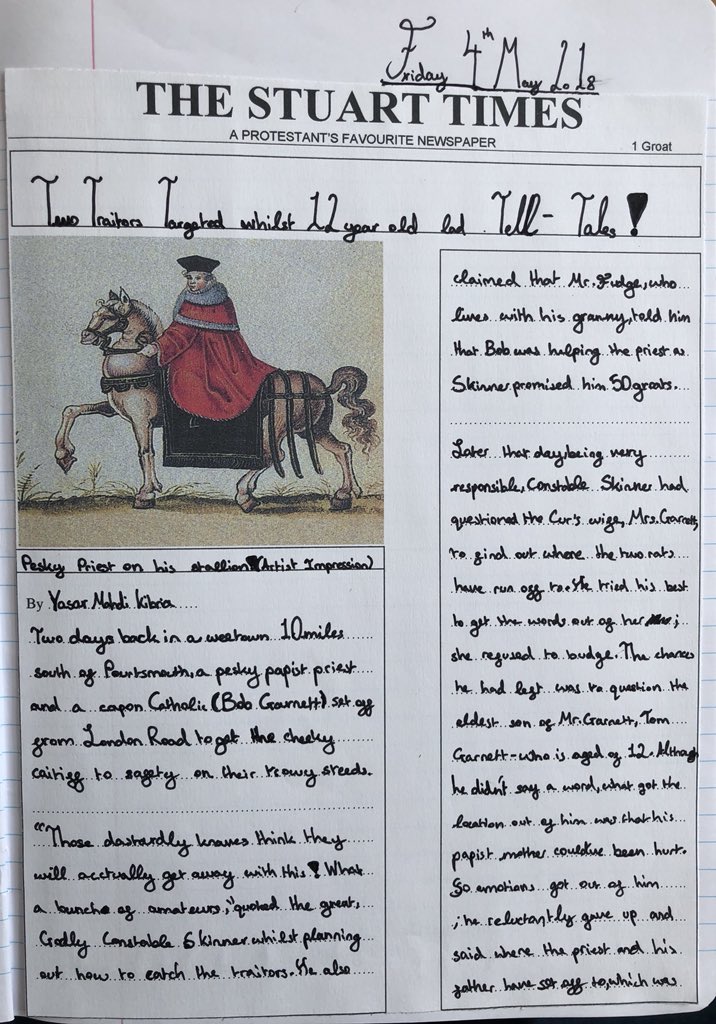 Friday 4th May 2018
THE STUART TIMES
A PROTESTANT'S FAVOURITE NEWSPAPER
1 Groat
Two Traitors Targeted whilst 12 year old lad Tell-Tales!
Pesky Priest on his stallion! (Artist Impression)
By Yasar Mahdi Kibria
Two days back in a wee town 10 miles
south of Pourtsmouth, a pesky papist priest
and a capon Catholic (Bob Garnett) set off
from London Road to get the cheeky
caitiff to safety on their steeds.
"Those dastardly knaves think they
will acctually get away with this! What
a bunche of amateurs," quoted the great,
Godly Constable Skinner whilst planning
out how to catch the traitors. He also
claimed that Mr. Fudge, who
lives with his granny, told him
that Bob was helping the priest as
Skinner promised him 50 groats.
Later that day, being very
responsible, Constable Skinner had
questioned the Cur's wife, Mrs. Garnett,
to find out where the two rats
have run off to. He tried his best
to get the words out of her ;
she refused to budge. The chance
he had left was to question the
eldest son of Mr. Garnett, Tom
Garnett - who is aged of 12. Although
he didn't say a word, what got the
location out of him was that his
papist mother couldve been hurt.
So emotions got out of him
; he reluctantly gave up and
said where the priest and his
father have set off to, which was